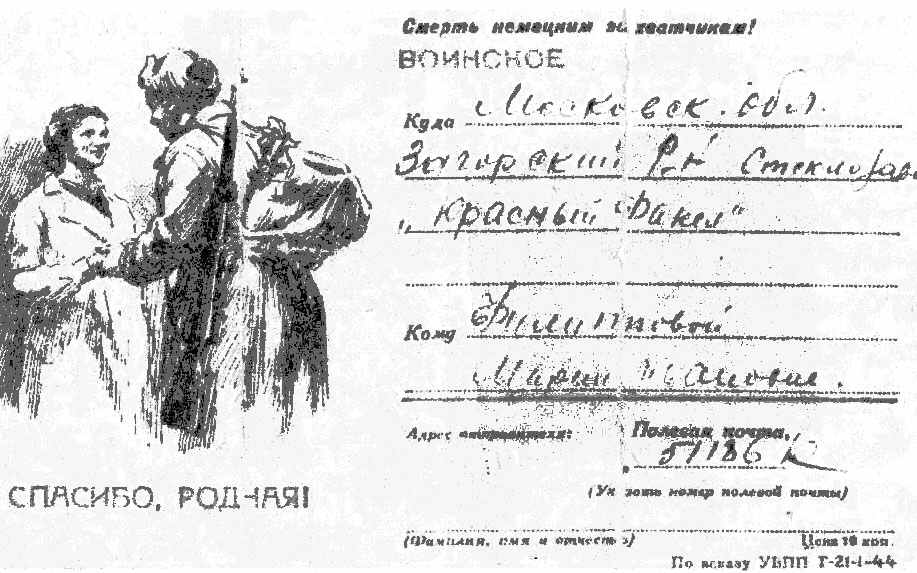 Смерть немецким захватчикам!
ВОИНСКОЕ
Куда Московск. обл.
Загорский р-н Стеклозав
„Красный Факел"
Кому Филипповой
Марии Ивановне.
Адрес отправителя: Полевая почта,
51186 К
(Указать номер полевой почты)
СПАСИБО, РОДНАЯ!
(Фамилия, имя и отчество) Цена 10 коп.
По заказу УВПП Г-21-1-44